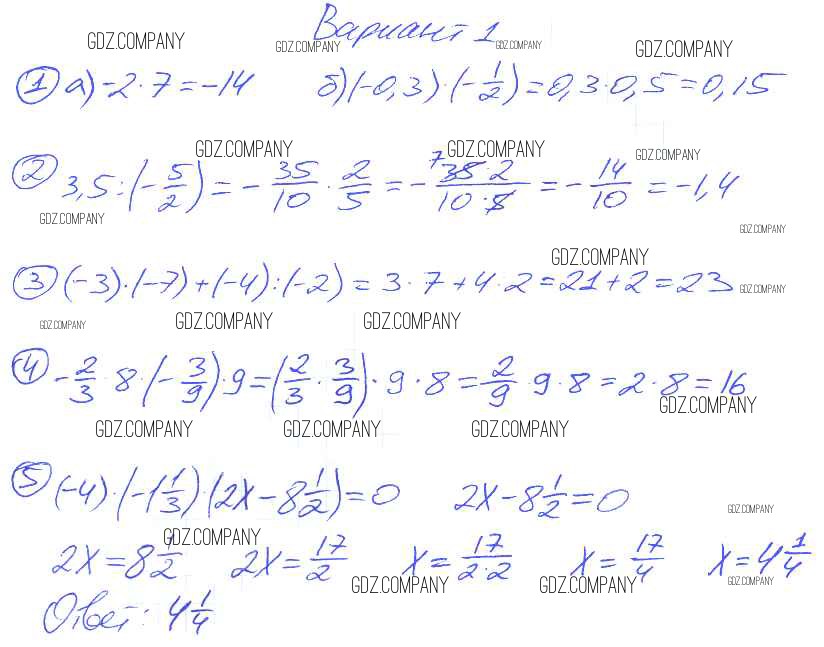 Вариант 1
GDZ.COMPANY GDZ.COMPANY GDZ.COMPANY GDZ.COMPANY
① а) -2·7=-14 б) (-0,3)·(-1/2)=0,3·0,5=0,15
GDZ.COMPANY GDZ.COMPANY GDZ.COMPANY
② 3,5:(-5/2)=-35/10·2/5=-7 35·2/10·5=-14/10=-1,4
GDZ.COMPANY GDZ.COMPANY
GDZ.COMPANY
③ (-3)·(-7)+(-4):(-2)=3·7+4·2=21+2=23 GDZ.COMPANY
GDZ.COMPANY GDZ.COMPANY GDZ.COMPANY
④ -2/3·8·(-3/9)·9=(2/3·3/9)·9·8=2/9·9·8=2·8=16
GDZ.COMPANY
GDZ.COMPANY GDZ.COMPANY GDZ.COMPANY
⑤ (-4)·(-1 1/3)·(2x-8 1/2)=0 2x-8 1/2=0
GDZ.COMPANY
GDZ.COMPANY
2x=8 1/2 2x=17/2 x=17/2·2 x=17/4 x=4 1/4
GDZ.COMPANY GDZ.COMPANY GDZ.COMPANY
Ответ: 4 1/4